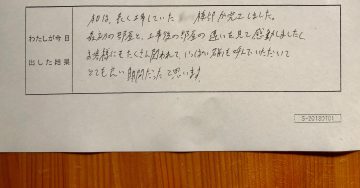 わたしが今日
出した結果
初後、長く工事していた 様邸が完工しました。
最初の部屋と、工事後の部屋の違いを見て感動しましたし
お客様にもたくさん関われて、いっぱい名前も呼んでいただいて
とても良い期間だったで思います。
S-20180701